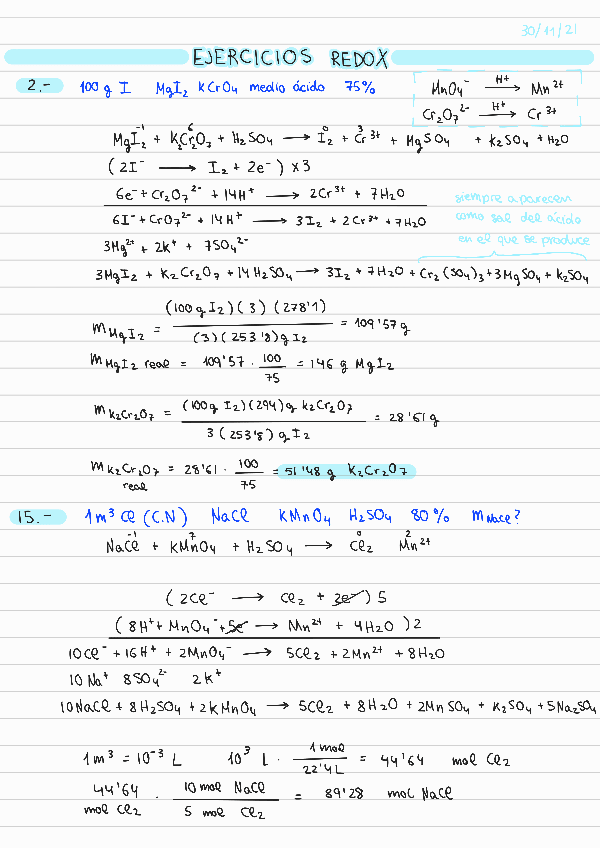 30/11/21
EJERCICIOS REDOX
2.- 100 g I MgI₂ KCrO₄ medio ácido 75%
MnO₄⁻ —H⁺→ Mn²⁺
Cr₂O₇²⁻ —H⁺→ Cr³⁺
-1 6 0 3
MgI₂ + K₂Cr₂O₇ + H₂SO₄ → I₂ + Cr³⁺ + MgSO₄ + K₂SO₄ + H₂O
(2I⁻ → I₂ + 2e⁻) x3
6e⁻ + Cr₂O₇²⁻ + 14H⁺ → 2Cr³⁺ + 7H₂O
6I⁻ + CrO₇²⁻ + 14H⁺ → 3I₂ + 2Cr³⁺ + 7H₂O
siempre aparecen
como sal del ácido
en el que se produce
3Mg²⁺ + 2K⁺ + 7SO₄²⁻
3MgI₂ + K₂Cr₂O₇ + 14H₂SO₄ → 3I₂ + 7H₂O + Cr₂(SO₄)₃ + 3MgSO₄ + K₂SO₄
m MgI₂ = (100g I₂)(3)(278'1) / (3)(253'8)g I₂ = 109'57 g
m MgI₂ real = 109'57 · 100/75 = 146 g MgI₂
m K₂Cr₂O₇ = (100g I₂)(294)g K₂Cr₂O₇ / 3(253'8) g I₂ = 28'61 g
m K₂Cr₂O₇ real = 28'61 · 100/75 = 51'48 g K₂Cr₂O₇
15.- 1m³ Cl (C.N) NaCl KMnO₄ H₂SO₄ 80% m NaCl?
-1 7 0 2
NaCl + KMnO₄ + H₂SO₄ → Cl₂ Mn²⁺
(2Cl⁻ → Cl₂ + 2e⁻) 5
(8H⁺ + MnO₄⁻ + 5e⁻ → Mn²⁺ + 4H₂O) 2
10Cl⁻ + 16H⁺ + 2MnO₄⁻ → 5Cl₂ + 2Mn²⁺ + 8H₂O
10Na⁺ 8SO₄²⁻ 2K⁺
10NaCl + 8H₂SO₄ + 2KMnO₄ → 5Cl₂ + 8H₂O + 2MnSO₄ + K₂SO₄ + 5Na₂SO₄
1m³ = 10⁻³ L 10³ L · 1 mol / 22'4L = 44'64 mol Cl₂
44'64 mol Cl₂ · 10 mol NaCl / 5 mol Cl₂ = 89'28 mol NaCl